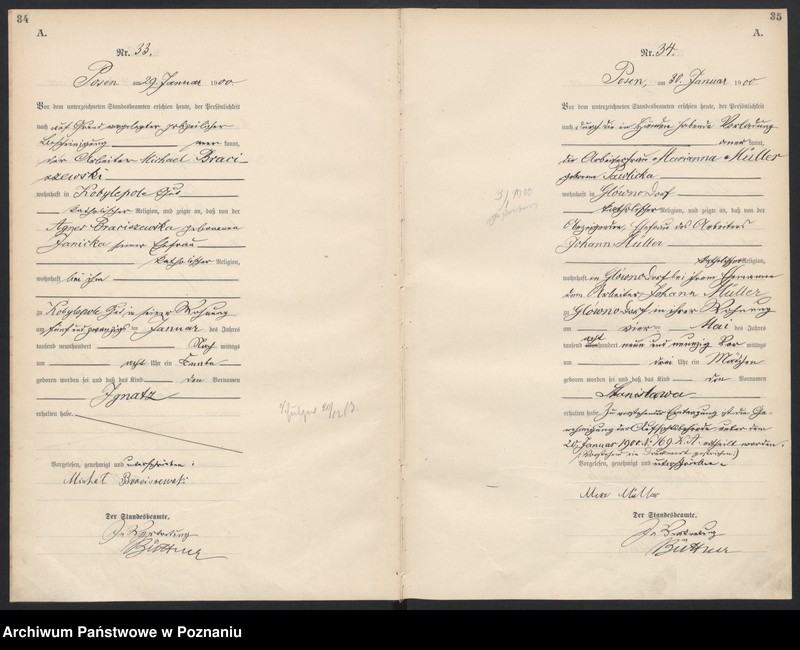 34
A.
Nr. 33.
Posen am 29. Januar 1900.
Vor dem unterzeichneten Standesbeamten erschien heute, der Persönlichkeit
nach auf Grund vorgelegter polizeilicher
Bescheinigung kannt,
der Arbeiter Michael Braci-
szewski
wohnhaft in Kobylepole Gut
katholischer Religion, und zeigte an, daß von der
Agnes Braciszewska geborenen
Janicka seiner Ehefrau
katholischer Religion,
wohnhaft bei ihm
zu Kobylepole Gut in seiner Wohnung
am fünf und zwanzigsten Januar des Jahres
tausend neunhundert Nachmittags
um acht Uhr ein Knabe
geboren worden sei und daß das Kind den Vornamen
Ignatz
erhalten habe.
Vorgelesen, genehmigt und unterschrieben:
Michał Braciszewski
Der Standesbeamte.
In Vertretung
Büttner
35
A.
Nr. 34.
Posen, am 30. Januar 1900
Vor dem unterzeichneten Standesbeamten erschien heute, der Persönlichkeit
nach durch die in Händen habende Vorladung
anerkannt,
die Arbeiterfrau Marianna Müller
geborene Pawlicka
wohnhaft in Glówno Dorf
katholischer Religion, und zeigte an, daß von der
Ehefrau des Arbeiters
Johann Müller
katholischer Religion,
wohnhaft in Glówno Dorf bei ihrem Ehemanne
dem Arbeiter Johann Müller
zu Glówno Dorf in ihrer Wohnung
am vierten Mai des Jahres
tausend achthundert neun und neunzig Vormittags
um drei Uhr ein Mädchen
geboren worden sei und daß das Kind den Vornamen
Stanislawa
erhalten habe. Zu vorstehender Eintragung ist die Ge-
nehmigung der Aufsichtsbehörde unter dem
20. Januar 1900 ertheilt worden.
Vorgelesen, genehmigt und unterschrieben.
Müller
Der Standesbeamte.
In Vertretung
Büttner
Archiwum Państwowe w Poznaniu